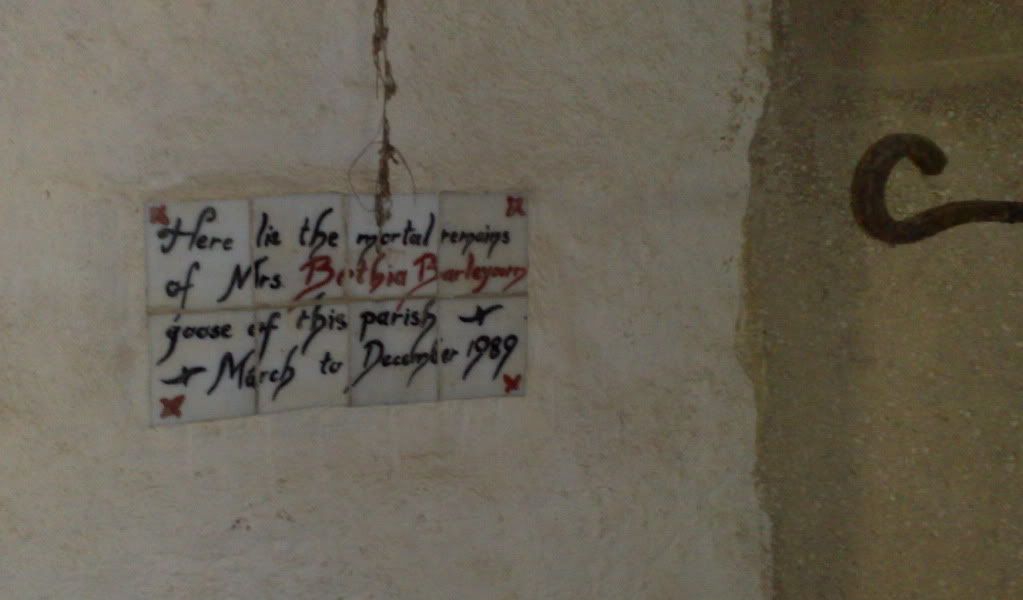 Here lie the mortal remains
of Mrs. Berthia Barleycorn
goose of this parish
March to December 1989